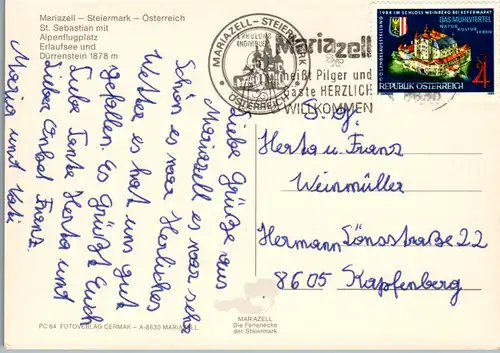 Mariazell – Steiermark – Österreich
St. Sebastian mit
Alpenflugplatz
Erlaufsee und
Dürrenstein 1878 m
MARIAZELL – STEIERMARK
ÖSTERREICH
Mariazell
heißt Pilger und
Gäste HERZLICH
WILLKOMMEN
LANDESAUSSTELLUNG 1988 IM SCHLOSS WEINBERG BEI KEFERMARKT
DAS MÜHLVIERTEL
NATUR
KULTUR
LEBEN
S 4
REPUBLIK ÖSTERREICH
Liebe Grüße aus
Mariazell es war sehr
schön es war Herrliches
Wetter es hat uns gut
gefallen. Es Grüßt Euch
Liebe Tante Herta und
Lieber Onkel Franz.
Maria und
Herta u. Franz
Weinmüller
Hermann Lönsstraße 22
8605 Kapfenberg
PC 64 FOTOVERLAG CERMAK – A-8630 MARIAZELL
MARIAZELL
Die Ferienecke
der Steiermark